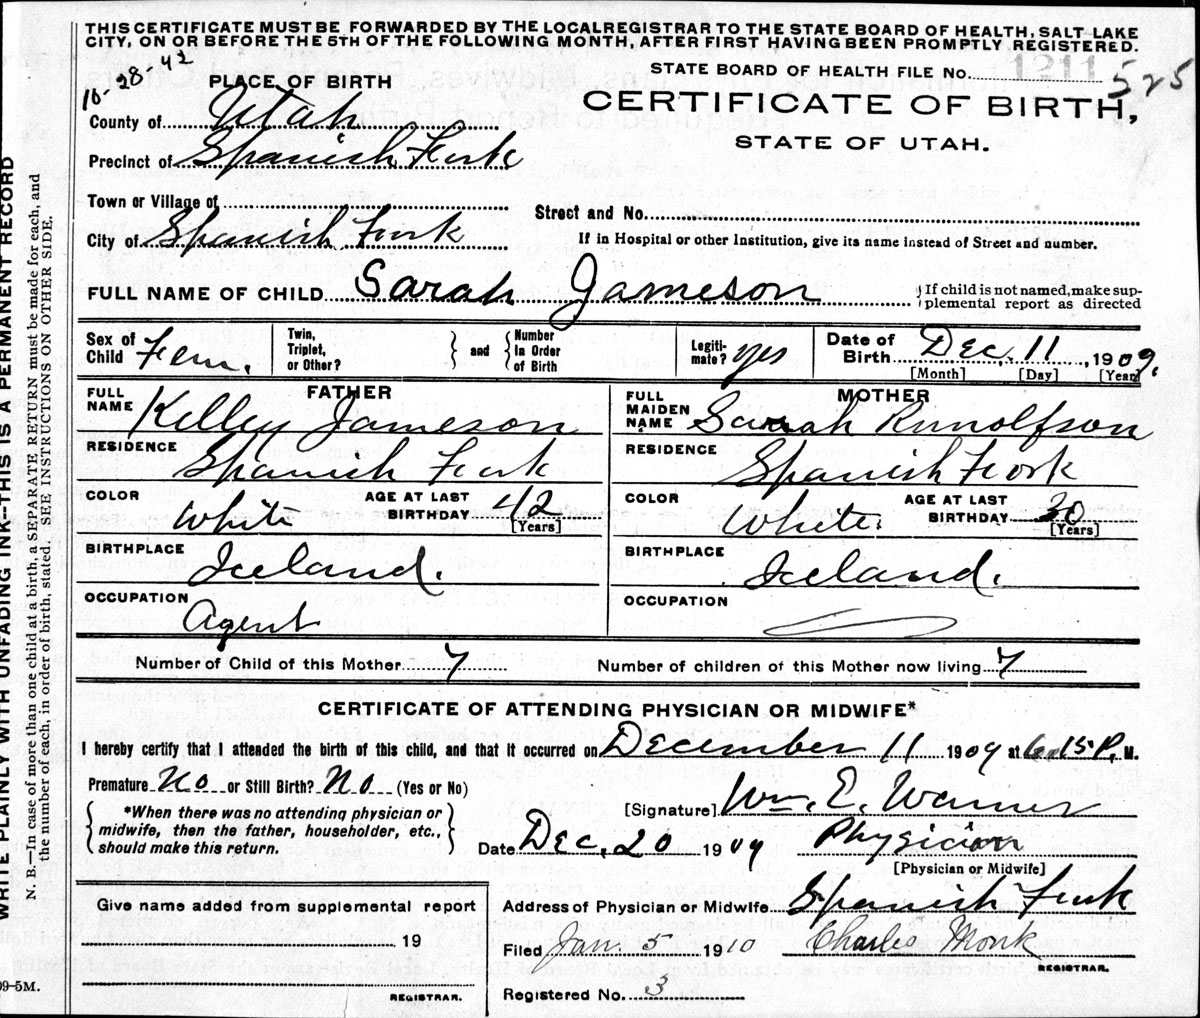 THIS CERTIFICATE MUST BE FORWARDED BY THE LOCAL REGISTRAR TO THE STATE BOARD OF HEALTH, SALT LAKE
CITY, ON OR BEFORE THE 5TH OF THE FOLLOWING MONTH, AFTER FIRST HAVING BEEN PROMPTLY REGISTERED.
10-28-42
STATE BOARD OF HEALTH FILE No. 525
PLACE OF BIRTH
CERTIFICATE OF BIRTH,
STATE OF UTAH.
County of Utah
Precinct of Spanish Fork
Town or Village of
Street and No.
City of Spanish Fork
If in Hospital or other Institution, give its name instead of Street and number.
FULL NAME OF CHILD Sarah Jameson
{If child is not named, make sup-
plemental report as directed
Sex of Child Fem.
Twin, Triplet, or Other?
} and {
Number in Order of Birth
Legiti-mate? yes
Date of Birth Dec. 11, 1909.
[Month] [Day] [Year]
FATHER
FULL NAME Kelley Jameson
RESIDENCE Spanish Fork
COLOR White
AGE AT LAST BIRTHDAY 42
[Years]
BIRTHPLACE Iceland.
OCCUPATION Agent
MOTHER
FULL MAIDEN NAME Sarah Runolfson
RESIDENCE Spanish Fork
COLOR White
AGE AT LAST BIRTHDAY 30
[Years]
BIRTHPLACE Iceland.
OCCUPATION
Number of Child of this Mother 7
Number of children of this Mother now living 7
CERTIFICATE OF ATTENDING PHYSICIAN OR MIDWIFE*
I hereby certify that I attended the birth of this child, and that it occurred on December 11 1909 at 6.15 P. M.
Premature No or Still Birth? No (Yes or No)
{ *When there was no attending physician or
midwife, then the father, householder, etc.,
should make this return. }
[Signature] Wm. E. Warner
Date Dec. 20 1909 Physician
[Physician or Midwife]
Give name added from supplemental report
19
REGISTRAR.
Address of Physician or Midwife Spanish Fork
Filed Jan 5 1910 Charles Monk
REGISTRAR.
Registered No. 3
09-5M.
WRITE PLAINLY WITH UNFADING INK--THIS IS A PERMANENT RECORD
N. B.—In case of more than one child at a birth, a SEPARATE RETURN must be made for each, and
the number of each, in order of birth, stated. SEE INSTRUCTIONS ON OTHER SIDE.